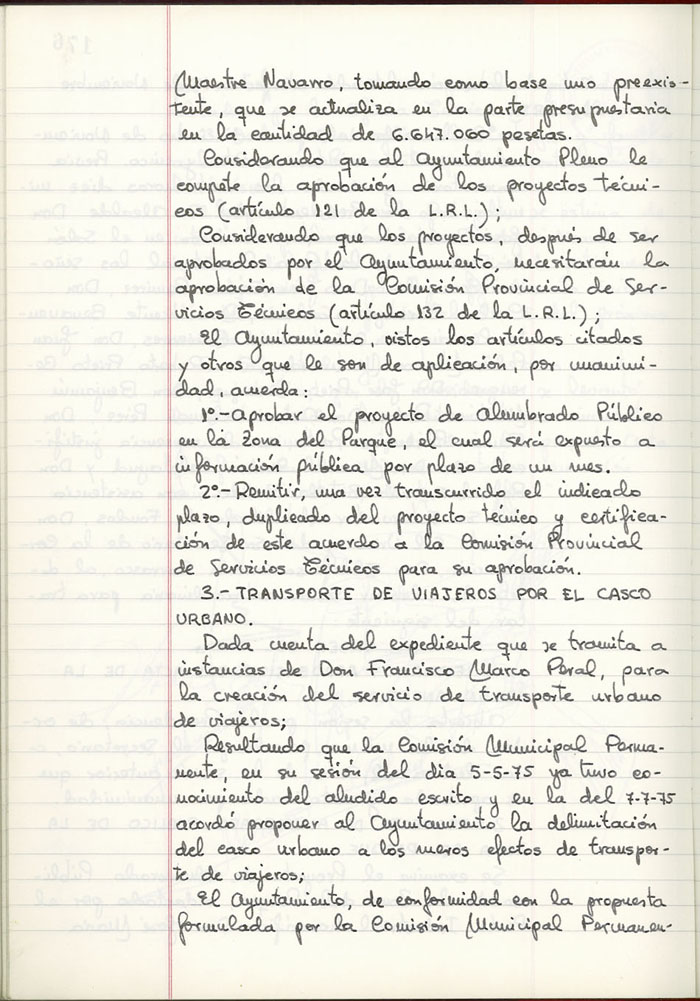 Maestre Navarro, tomando como base uno preexis-
tente, que se actualiza en la parte presupuestaria
en la cantidad de 6.647.060 pesetas.
Considerando que al Ayuntamiento Pleno le
compete la aprobación de los proyectos técni-
cos (artículo 121 de la L.R.L.);
Considerando que los proyectos, después de ser
aprobados por el Ayuntamiento, necesitarán la
aprobación de la Comisión Provincial de Ser-
vicios Técnicos (artículo 132 de la L.R.L.);
El Ayuntamiento, vistos los artículos citados
y otros que le son de aplicación, por unanimi-
dad, acuerda:
1º.- Aprobar el proyecto de Alumbrado Público
en la Zona del Parque, el cual será expuesto a
información pública por plazo de un mes.
2º.- Remitir, una vez transcurrido el indicado
plazo, duplicado del proyecto técnico y certifica-
ción de este acuerdo a la Comisión Provincial
de Servicios Técnicos para su aprobación.
3.- TRANSPORTE DE VIAJEROS POR EL CASCO
URBANO.
Dada cuenta del expediente que se tramita a
instancias de Don Francisco Marco Peral, para
la creación del servicio de transporte urbano
de viajeros;
Resultando que la Comisión Municipal Perma-
nente, en su sesión del dia 5-5-75 ya tuvo co-
nocimiento del aludido escrito y en la del 7-7-75
acordó proponer al Ayuntamiento la delimitación
del casco urbano a los meros efectos de transpor-
te de viajeros;
El Ayuntamiento, de conformidad con la propuesta
formulada por la Comisión Municipal Permanen-